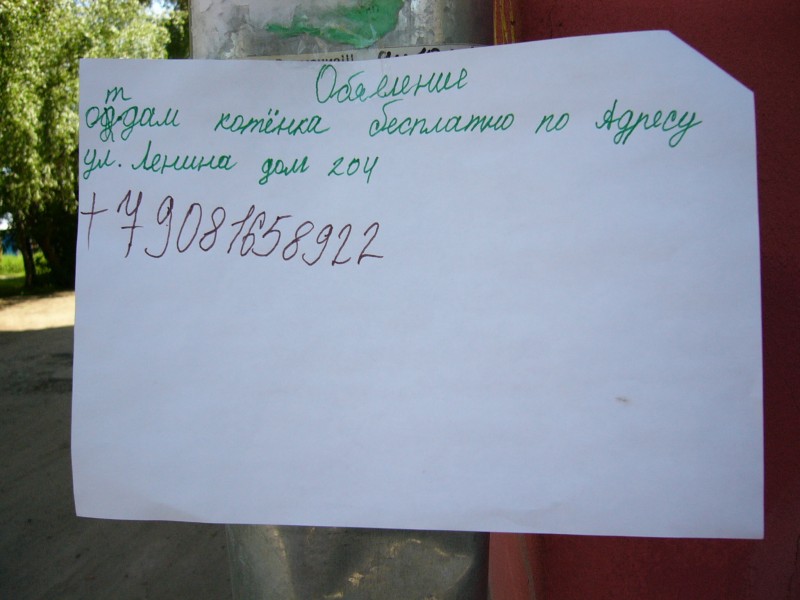 Обявление
отдам котёнка бесплатно по Адресу
ул. Ленина дом 204
+79081658922